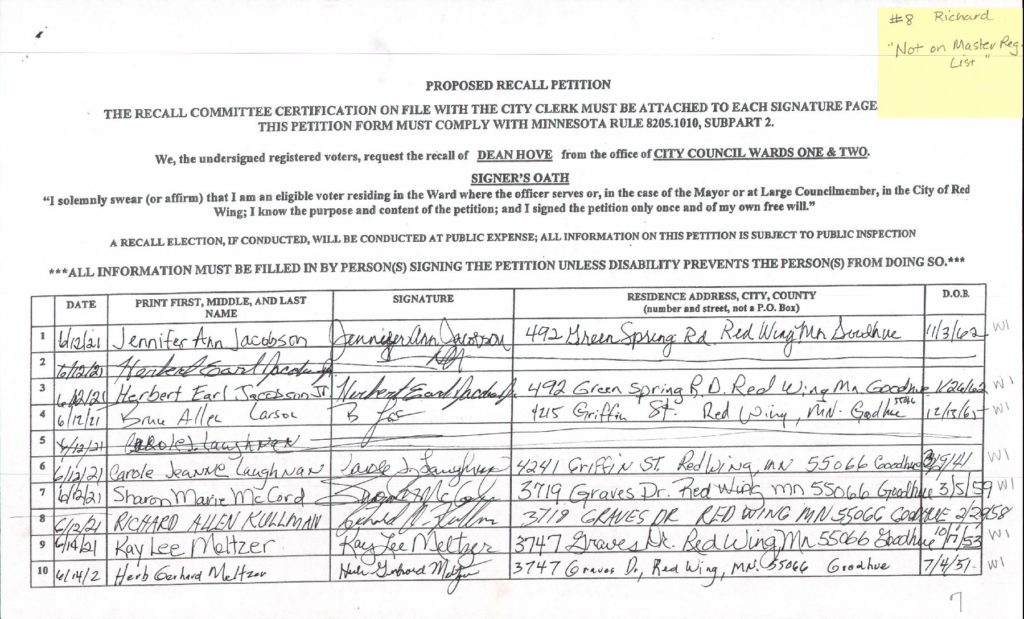 #8 Richard
"Not on Master Reg.
List"
PROPOSED RECALL PETITION
THE RECALL COMMITTEE CERTIFICATION ON FILE WITH THE CITY CLERK MUST BE ATTACHED TO EACH SIGNATURE PAGE
THIS PETITION FORM MUST COMPLY WITH MINNESOTA RULE 8205.1010, SUBPART 2.
We, the undersigned registered voters, request the recall of DEAN HOVE from the office of CITY COUNCIL WARDS ONE & TWO.
SIGNER'S OATH
"I solemnly swear (or affirm) that I am an eligible voter residing in the Ward where the officer serves or, in the case of the Mayor or at Large Councilmember, in the City of Red
Wing; I know the purpose and content of the petition; and I signed the petition only once and of my own free will."
A RECALL ELECTION, IF CONDUCTED, WILL BE CONDUCTED AT PUBLIC EXPENSE; ALL INFORMATION ON THIS PETITION IS SUBJECT TO PUBLIC INSPECTION
***ALL INFORMATION MUST BE FILLED IN BY PERSON(S) SIGNING THE PETITION UNLESS DISABILITY PREVENTS THE PERSON(S) FROM DOING SO.***
DATE PRINT FIRST, MIDDLE, AND LAST NAME SIGNATURE RESIDENCE ADDRESS, CITY, COUNTY (number and street, not a P.O. Box) D.O.B.
1 6/12/21 Jennifer Ann Jacobson Jennifer Ann Jacobson 492 Green Spring Rd. Red Wing Mn Goodhue 11/3/62 W1
2 6/12/21 Herbert Earl Jacobson
3 6/12/21 Herbert Earl Jacobson Jr Herbert Earl Jacobson 492 Green Spring R.D. Red Wing Mn Goodhue 1/26/62 W1
4 6/12/21 Bruce Allen Larson B 4215 Griffin St. Red Wing, MN. Goodhue 55066 12/13/65 W1
5 6/12/21 Carole J. Laughnan
6 6/12/21 Carole Jeanne Laughnan Carole J. Laughnan 4241 Griffin St. Red Wing, MN 55066 Goodhue /9/41 W1
7 6/12/21 Sharon Marie McCord 3719 Graves Dr. Red Wing mn 55066 Goodhue 3/5/59 W1
8 6/12/21 RICHARD ALLEN KULLMAN 3719 GRAVES DR RED WING MN 55066 GOODHUE
9 6/14/21 Kay Lee Meltzer Kay Lee Meltzer 3747 Graves Dr. Red Wing, Mn 55066 Goodhue W1
10 6/14/2 Herb Gerhard Meltzer Herb Gerhard Meltzer 3747 Graves Dr, Red Wing, MN. 55066 Goodhue 7/4/51 W1
7